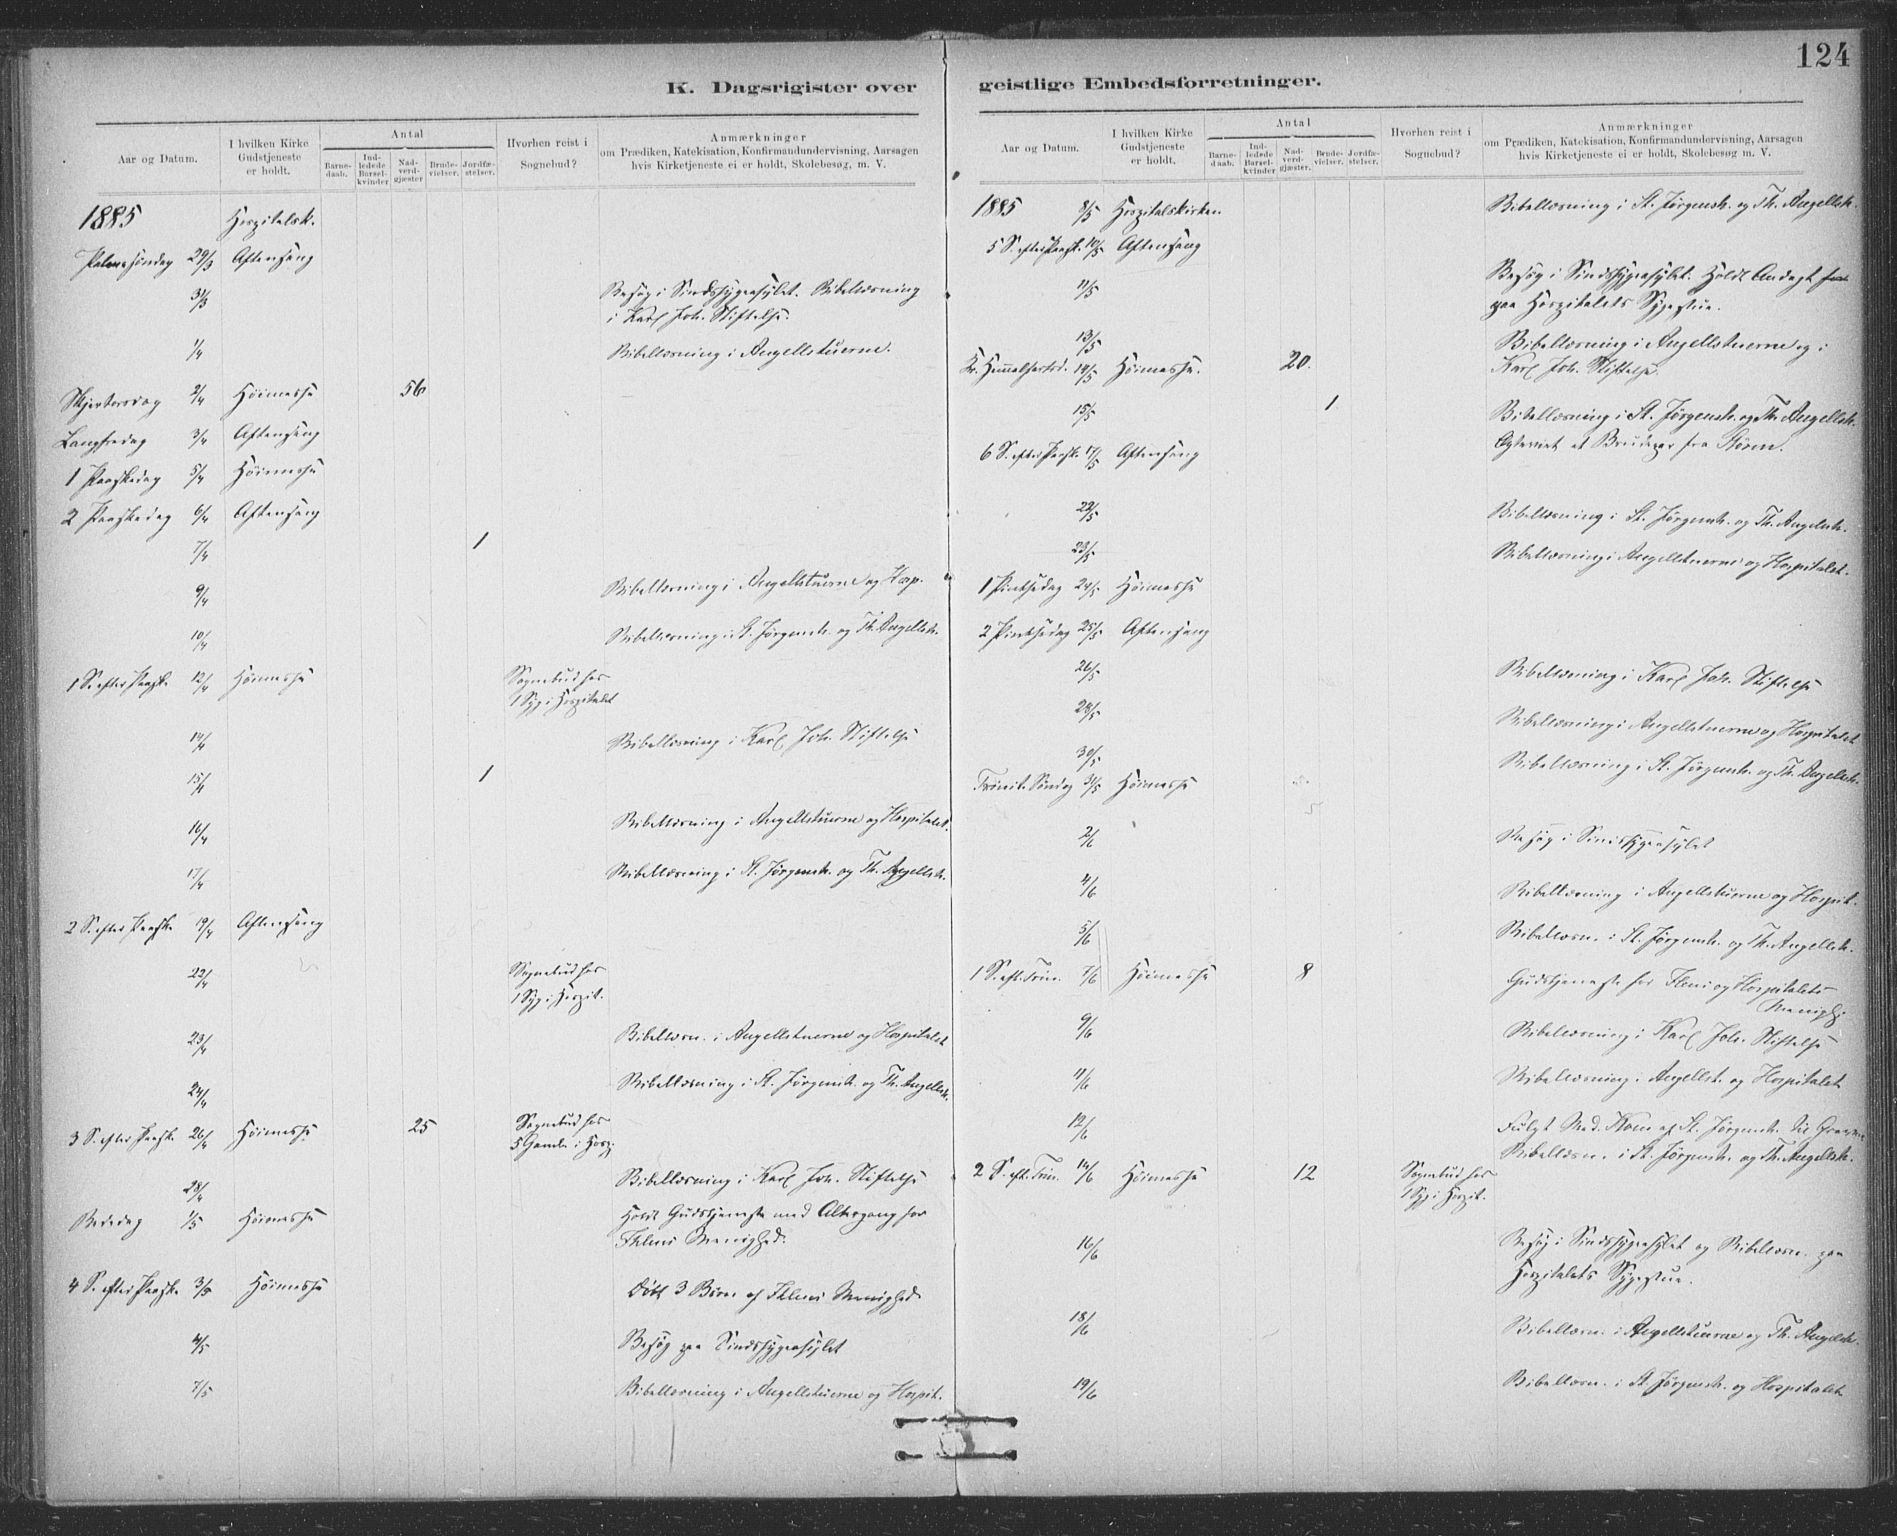 124
K. Dagsrigister over geistlige Embedsforretninger.
Aar og Datum.
I hvilken Kirke Gudstjeneste er holdt.
Antal
Barne-daab.
Ind-ledede Barsel-kvinder
Nad-verd-gjæster
Brude-vielser.
Jordfæ-stelser.
Hvorhen reist i Sognebud?
Anmærkninger
om Prædiken, Katekisation, Konfirmandundervisning, Aarsagen
hvis Kirketjeneste ei er holdt, Skolebesøg, m. V.
1885 Hospitalsk.
Palmesøndag 29/3 Aftensang
31/3 Besøg i Sindssygeasylet. Bibellæsning
i Karl Joh. Stiftelse.
1/4 Bibellæsning i Angellstuerne.
Skjærtorsdag 2/4 Høimesse 56
Langfredag 3/4 Aftensang
1 Paaskedag 5/4 Høimesse
2 Paaskedag 6/4 Aftensang
7/4 1
9/4 Bibellæsning i Angellstuerne og Hosp.
10/4 Bibellæsning i St. Jørgensh. og Th. Angellsh.
1 S. efter Paaske 12/4 Høimesse Sognebud hos
1 Syg i Hospitalet
14/4 Bibellæsning i Karl Joh. Stiftelse
15/4 1
16/4 Bibellæsning i Angellstuerne og Hospitalet.
17/4 Bibellæsning i St. Jørgensh. og Th. Angellsh.
2 S. efter Paaske 19/4 Aftensang
22/4 Sognebud hos
1 Syg i Hospit.
23/4 Bibellæsn. i Angellstuerne og Hospitalet
24/4 Bibellæsning i St. Jørgensh. og Th. Angellsh.
3 S. efter Paaske 26/4 Høimesse 25 Sognebud hos
5 Gamle i Hosp.
28/4 Bibellæsning i Karl Joh. Stiftelse
Bededag 1/5 Høimesse Holdt Gudstjeneste med Altergang for
Ihlens Menighed.
4 S. efter Paaske 3/5 Høimesse Døbt 3 Børn af Ihlens Menighed
4/5 Besøg paa Sindssygeasylet
7/5 Bibellæsning i Angellstuerne og Hospit.
Aar og Datum.
I hvilken Kirke Gudstjeneste er holdt.
Antal
Barne-daab.
Ind-ledede Barsel-kvinder
Nad-verd-gjæster.
Brude-vielser.
Jordfæ-stelser.
Hvorhen reist i Sognebud?
Anmærkninger
om Prædiken, Katekisation, Konfirmandundervisning, Aarsagen
hvis Kirketjeneste ei er holdt, Skolebesøg, m. V.
1885 8/5 Hospitalskirken Bibellæsning i St. Jørgensh. og Th. Angellsh.
5 S. efter Paaske 10/5 Aftensang
11/5 Besøg i Sindssygeasylet. Holdt Andagt
paa Hospitalets Sygestue.
13/5 Bibellæsning i Angellstuerne og i
Karl Joh. Stiftelse.
Kr. Himmelfartsd. 14/5 Høimesse. 20.
15/5 1 Bibellæsning i St. Jørgensh. og Th. Angellsh.
Ægteviet et Brudepar fra Støren.
6 S. efter Paaske 17/5 Aftensang
22/5 Bibellæsning i St. Jørgensh. og Th. Angellsh.
23/5 Bibellæsning i Angellstuerne og Hospitalet.
1 Pinsedag 24/5 Høimesse
2 Pinsedag 25/5 Aftensang
26/5 Bibellæsning i Karl Joh. Stiftelse
28/5 Bibellæsning i Angellstuerne og Hospitalet
30/5 Bibellæsning i St. Jørgensh. og Th. Angellsh.
Trinit. Søndag 31/5 Høimesse
2/6 Besøg i Sindssygeasylet
4/6 Bibellæsning i Angellstuerne og Hospit.
5/6 Bibellæsn. i St. Jørgensh. og Th. Angellsh.
1 S. eft. Trin. 7/6 Høimesse 8 Gudstjeneste for Ihlens og Hospitalets
Menigh.
9/6 Bibellæsning i Karl Joh. Stiftelse
11/6 Bibellæsning i Angellst. og Hospitalet
12/6 Fulgt Mad. af St. Jørgensh. til Graven
Bibellæsn. i St. Jørgensh. og Th. Angellsh.
2 S. eft. Trin. 14/6 Høimesse 12 Sognebud hos
1 Syg i Hospit.
16/6 Besøg i Sindssygeasylet og Bibellæsn. paa
Hospitalets Sygestue.
18/6 Bibellæsn. i Angellstuerne og Th. Angellsh.
19/6 Bibellæsn. i St. Jørgensh. og Hospitalet